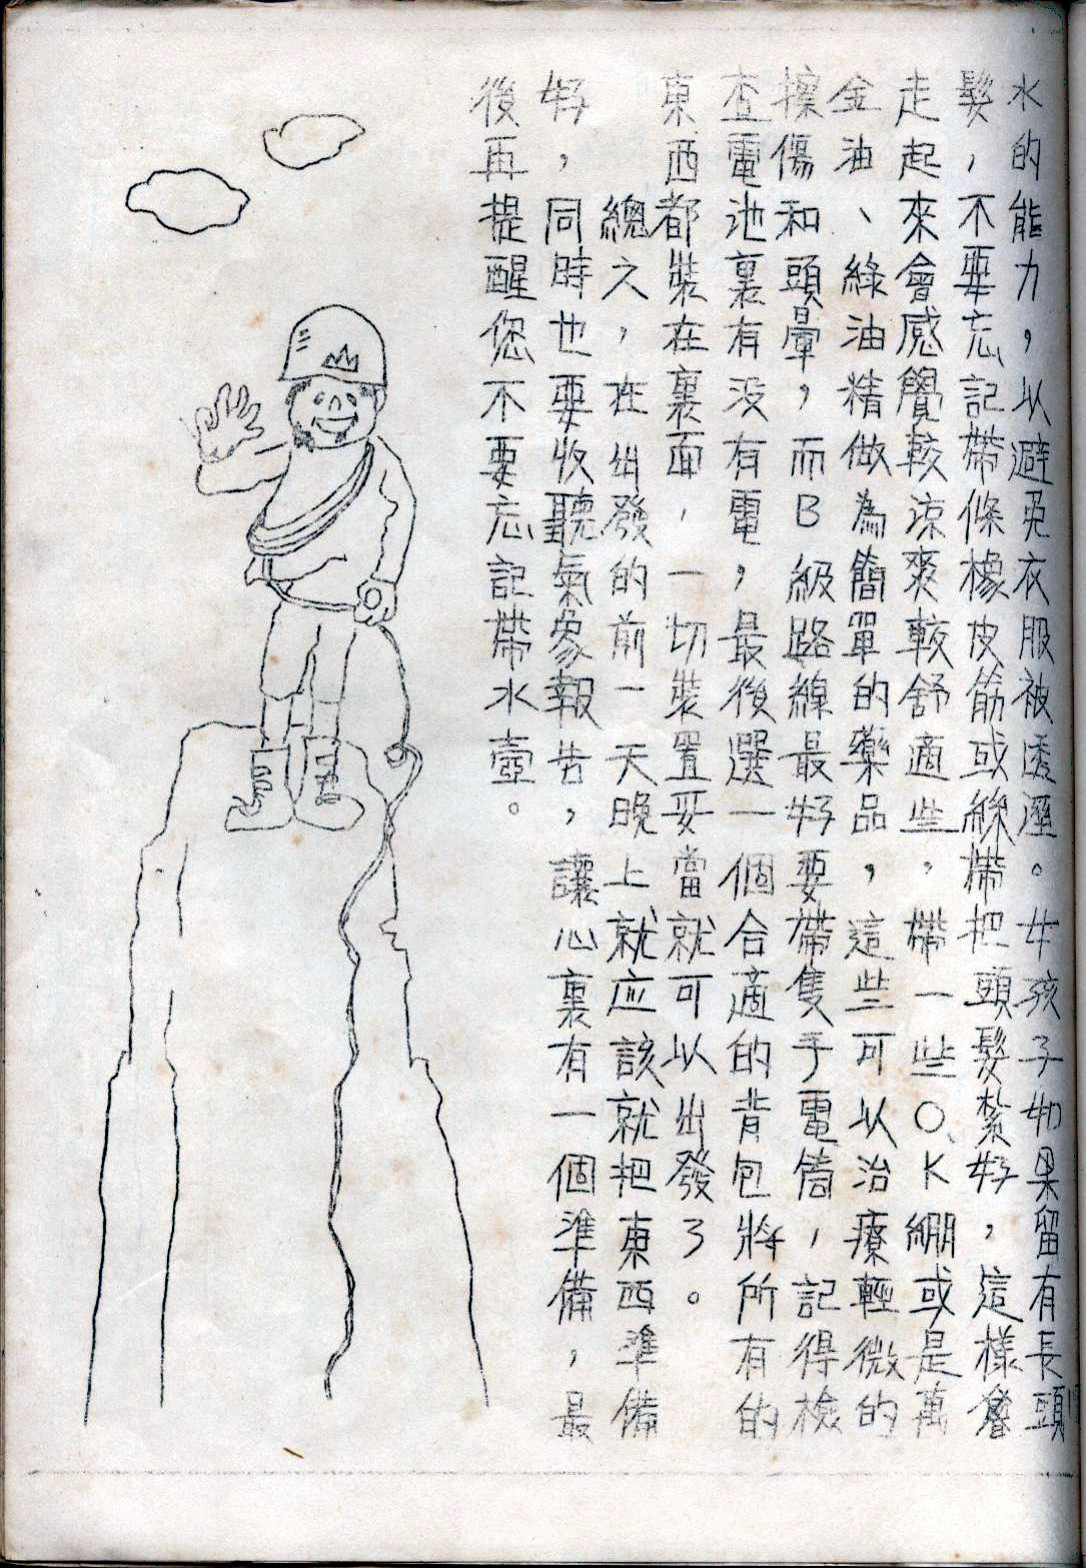 水的能力，以避免衣服被透溼。女孩子如果留有長頭
髮，不要忘記帶條橡皮筋或絲帶把頭髮紮好，這樣
走起來會感覺較涼爽較舒適些，帶一些O.K繃或是萬
金油、綠油精做為簡單的藥品，這些可以治療輕微的
擦傷和頭暈，而B級路線最好要帶隻手電筒，記得檢
查電池裏有没有電，最後選一個合適的背包將所有的
東西都裝在裏面，一切裝置妥當就可以出發了。
總之，在出發的前一天晚上就应該就把東西準備
好，同時也要收聽氣象報告，讓心裏有一個準備，最
後再提醒您不要忘記帶水壺。